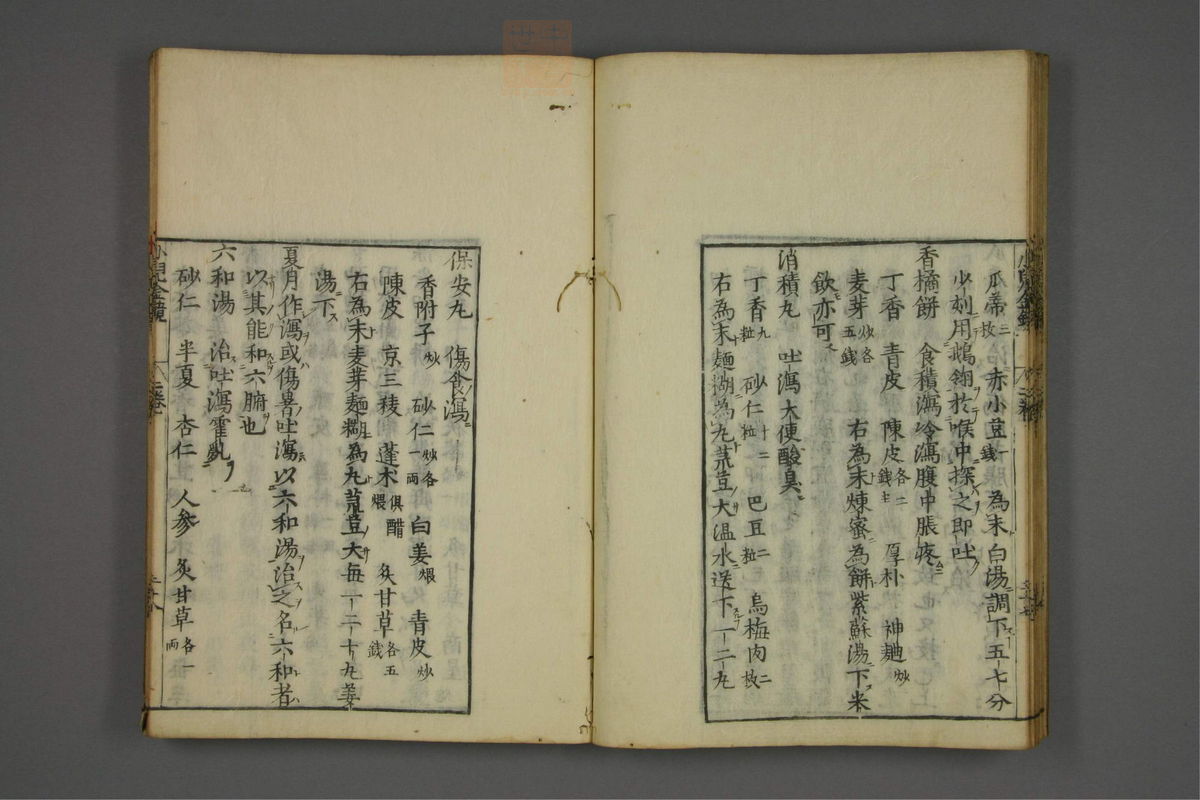 瓜蒂二枚 赤小豆一錢 為末白湯調下五七分
少刻用鵝翎於喉中探之即吐
香橘餅 食積瀉冷瀉腹中脹疼
丁香 青皮 陳皮各二錢 厚朴 神麯炒
麦芽炒各五錢 右為末煉蜜為餅紫蘇湯下米
飲亦可
消積丸 吐瀉大便酸臭
丁香九粒 砂仁十二粒 巴豆二粒 烏梅肉二枚
右為末麵糊為丸菉豆大温水送下一二丸
保安丸 傷食瀉
香附子炒 砂仁炒各一両 白姜煨 青皮炒
陳皮 京三稜 蓬术俱醋煨 炙甘草各五錢
右為末麦芽麵糊為丸菉豆大毎一二十丸姜
湯下
夏月作瀉或傷暑吐瀉以六和湯治之名六和者
以其能和六腑也
六和湯 治吐瀉霍乱
砂仁 半夏 杏仁 人參 炙甘草各一両